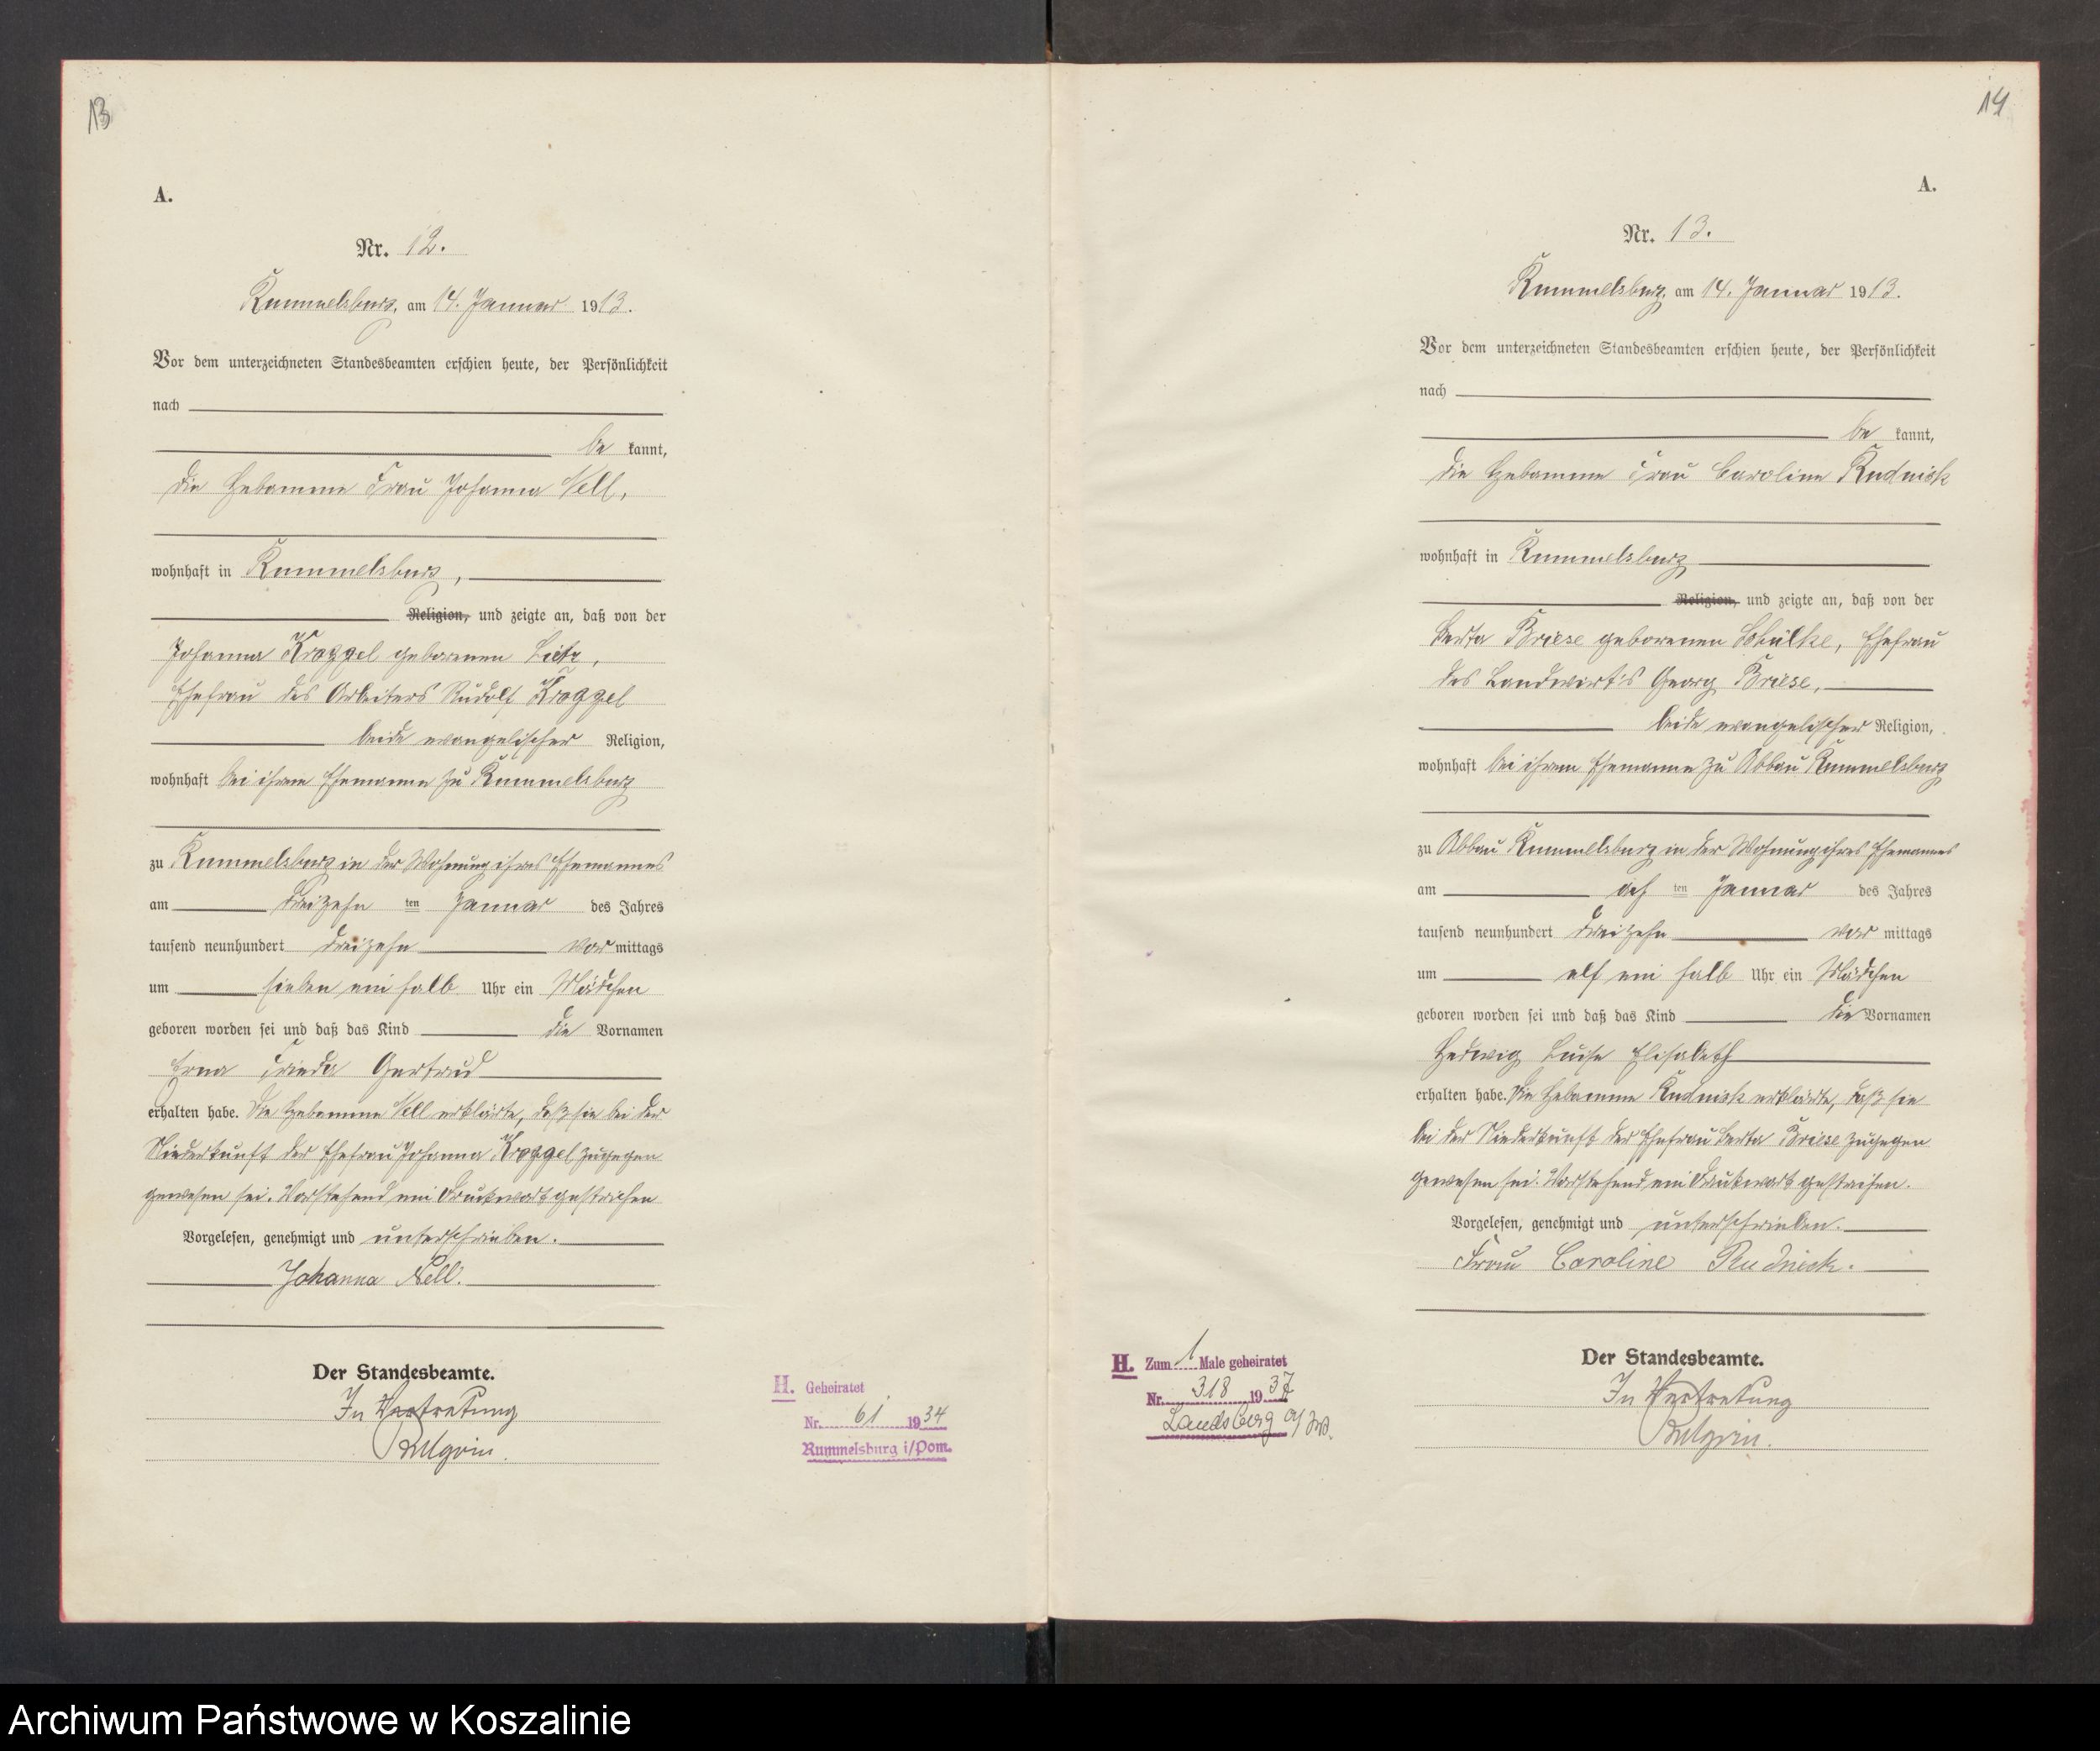 13
A.
Nr. 12.
Rummelsburg, am 14. Januar 1913.
Vor dem unterzeichneten Standesbeamten erschien heute, der Persönlichkeit
nach
be kannt,
die Hebamme Frau Johanna Nell,
wohnhaft in Rummelsburg,
Religion, und zeigte an, daß von der
Johanna Kroggel geborenen Lietz,
Ehefrau des Arbeiters Rudolf Kroggel
beide evangelischer Religion,
wohnhaft bei ihrem Ehemanne zu Rummelsburg
zu Rummelsburg in der Wohnung ihres Ehemannes
am dreizehn ten Januar des Jahres
tausend neunhundert dreizehn vor mittags
um sieben ein halb Uhr ein Mädchen
geboren worden sei und daß das Kind die Vornamen
Erna Frieda Gertrud
erhalten habe. Die Hebamme Nell erklärte, daß sie bei der
Niederkunft der Ehefrau Johanna Kroggel zugegen
gewesen sei. Vorstehend ein Druckwort gestrichen
Vorgelesen, genehmigt und unterschrieben.
Johanna Nell.
Der Standesbeamte.
In Vertretung
H. Geheiratet
Nr. 61 1934
Rummelsburg i/Pom.
14
A.
Nr. 13.
Rummelsburg, am 14. Januar 1913.
Vor dem unterzeichneten Standesbeamten erschien heute, der Persönlichkeit
nach
be kannt,
die Hebamme Frau Caroline Rudnick
wohnhaft in Rummelsburg
Religion, und zeigte an, daß von der
Berta Briese geborenen Schülke, Ehefrau
des Landwirts Georg Briese,
beide evangelischer Religion,
wohnhaft bei ihrem Ehemanne zu Abbau Rummelsburg
zu Abbau Rummelsburg in der Wohnung ihres Ehemannes
am ach ten Januar des Jahres
tausend neunhundert dreizehn vor mittags
um elf ein halb Uhr ein Mädchen
geboren worden sei und daß das Kind die Vornamen
Hedwig Luise Elisabeth
erhalten habe. Die Hebamme Rudnick erklärte, daß sie
bei der Niederkunft der Ehefrau Berta Briese zugegen
gewesen sei. Vorstehend ein Druckwort gestrichen.
Vorgelesen, genehmigt und unterschrieben.
Frau Caroline Rudnick.
Der Standesbeamte.
In Vertretung
H. Zum 1 Male geheiratet
Nr. 318 1937
Landsberg a/W.
Archiwum Państwowe w Koszalinie